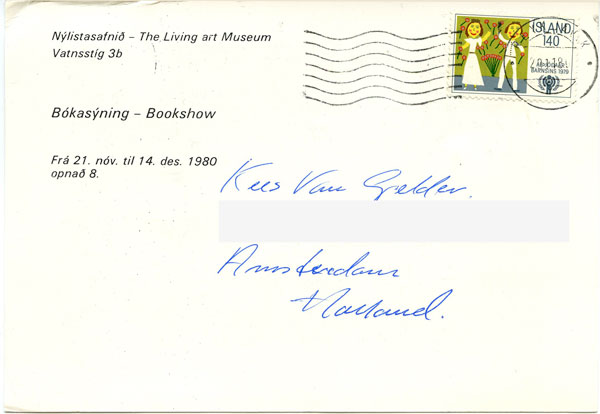 Nýlistasafnið – The Living art Museum
Vatnsstíg 3b
ÍSLAND
140
BARNSINS 1979
Bókasýning – Bookshow
Frá 21. nóv. til 14. des. 1980
opnað 8.
Kees Van Gelder.
Amsterdam
Holland.